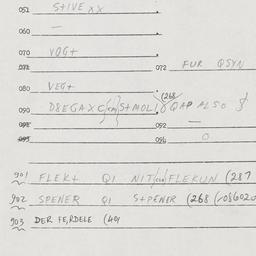 051 S+IVE XX
060 —
070 VOG+
071 072 FUR QSYN
080 VEG+
(268
090 D8EGAXC S+MOLI QAP ALSO 8
091 092 —
095 096 O
901 FLEK+ QI NIT FLEKUN (287
902 SPENER QI S+PENER (268 (086020
903 DER FE,RDELE (401